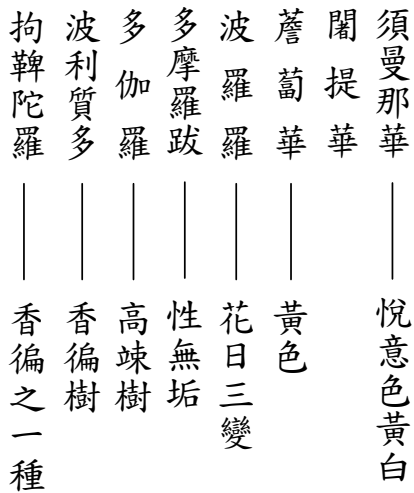 須曼那華——悅意色黃白
闍提華
薝蔔華——黃色
波羅羅——花日三變
多摩羅跋——性無垢
多伽羅——高竦樹
波利質多——香徧樹
拘鞞陀羅——香徧之一種